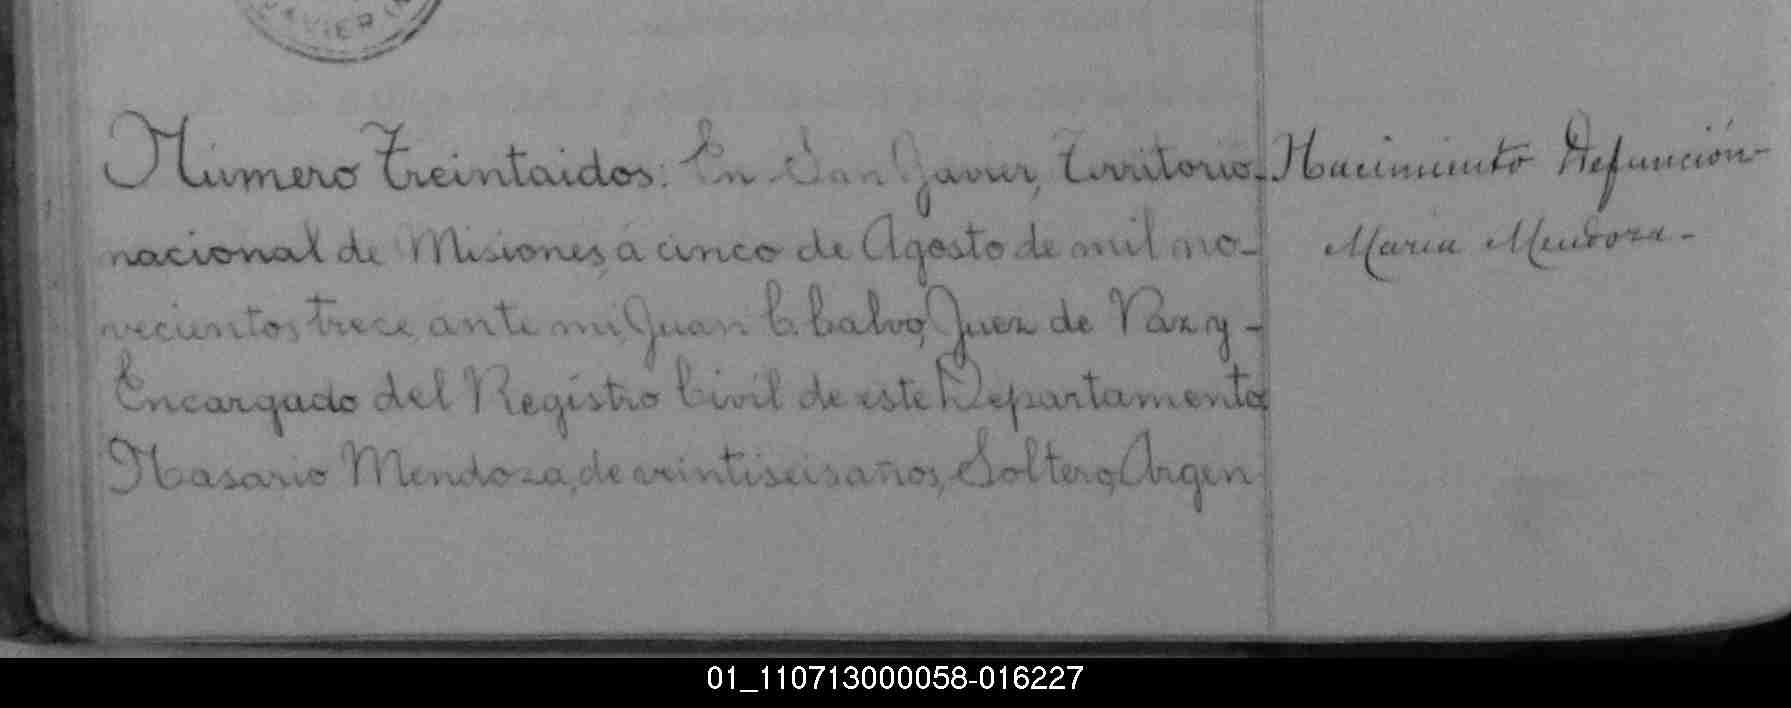 AVIER
Número Treintaidos: En San Javier, Territorio-
nacional de Misiones, á cinco de Agosto de mil no-
vecientos trece, ante mi, Juan C. Calvo, Juez de Paz y-
Encargado del Registro Civil de este Departamento,
Nasario Mendoza, de veintiseis años, Soltero, Argen
Nacimiento Defunción-
Maria Mendoza-
01_110713000058-016227